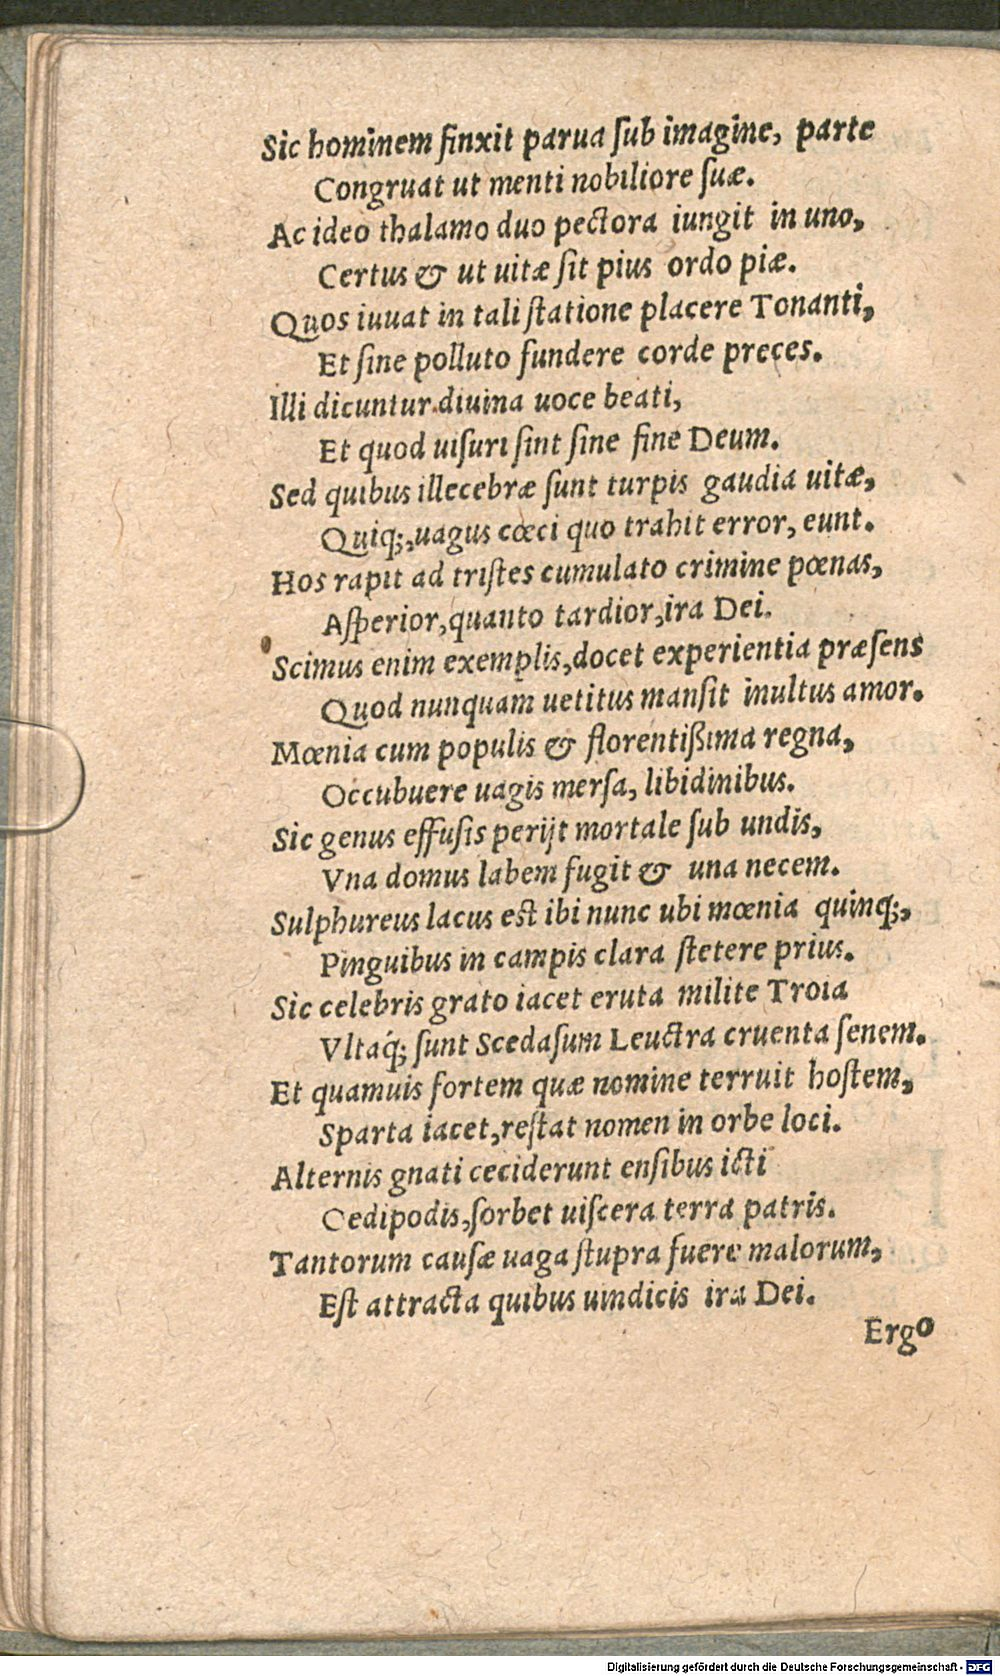 Sic hominem finxit parua ſub imagine, parte
Congruat ut menti nobiliore ſuæ.
Ac ideo thalamo duo pectora iungit in uno,
Certus & ut uitæ ſit pius ordo piæ.
Quos iuuat in tali ſtatione placere Tonanti,
Et ſine polluto fundere corde preces.
Illi dicuntur diuina uoce beati,
Et quod uiſuri ſint ſine fine Deum.
Sed quibus illecebræ ſunt turpis gaudia uitæ,
Quiq;, uagus cœci quo trahit error, eunt.
Hos rapit ad triſtes cumulato crimine pœnas,
Aſperior, quanto tardior, ira Dei.
Scimus enim exemplis, docet experientia præſens
Quod nunquam uetitus manſit inultus amor.
Mœnia cum populis & florentißima regna,
Occubuere uagis merſa, libidinibus.
Sic genus effuſis perijt mortale ſub undis,
Vna domus labem fugit & una necem.
Sulphureus lacus eſt ibi nunc ubi mœnia quinq;,
Pinguibus in campis clara ſtetere prius.
Sic celebris grato iacet eruta milite Troia
Vltaq́; ſunt Scedaſum Leuctra cruenta ſenem.
Et quamuis fortem quæ nomine terruit hoſtem,
Sparta iacet, reſtat nomen in orbe loci.
Alternis gnati ceciderunt enſibus icti
Oedipodis, ſorbet uiſcera terra patris.
Tantorum cauſæ uaga ſtupra fuere malorum,
Eſt attracta quibus uindicis ira Dei.
Ergo
Digitalisierung gefördert durch die Deutsche Forschungsgemeinschaft - DFG